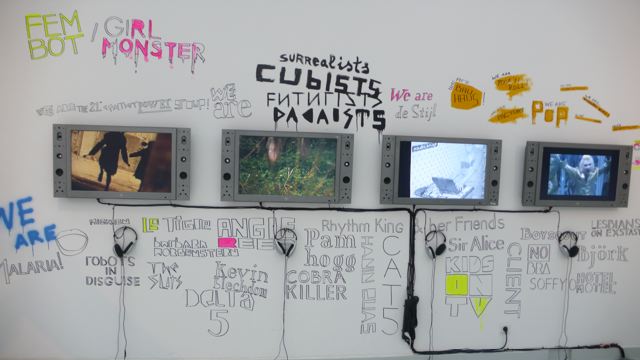 FEM
BOT
/ GIRL
MONSTER
SURREALISTS
CUBISTS
FUTURISTS
DADAISTS
We
are
We are
de Stijl
BAU
HAUS
WE ARE
POP
WE
ARE
MALARIA!
ROBOTS
IN
DISGUISE
LE TIGRE
BARBARA
MORGENSTERN
THE
SLITS
ANGIE
REED
Kevin
Blechdom
DELTA
5
Pam
hogg
COBRA
KILLER
Rhythm King & her Friends
HANIN ELIAS
CAT 5
Sir Alice
KIDS
ON
TV
CLIENT
NO
BRA
SOFFY O
LESBIANS
ON ECSTASY
björk